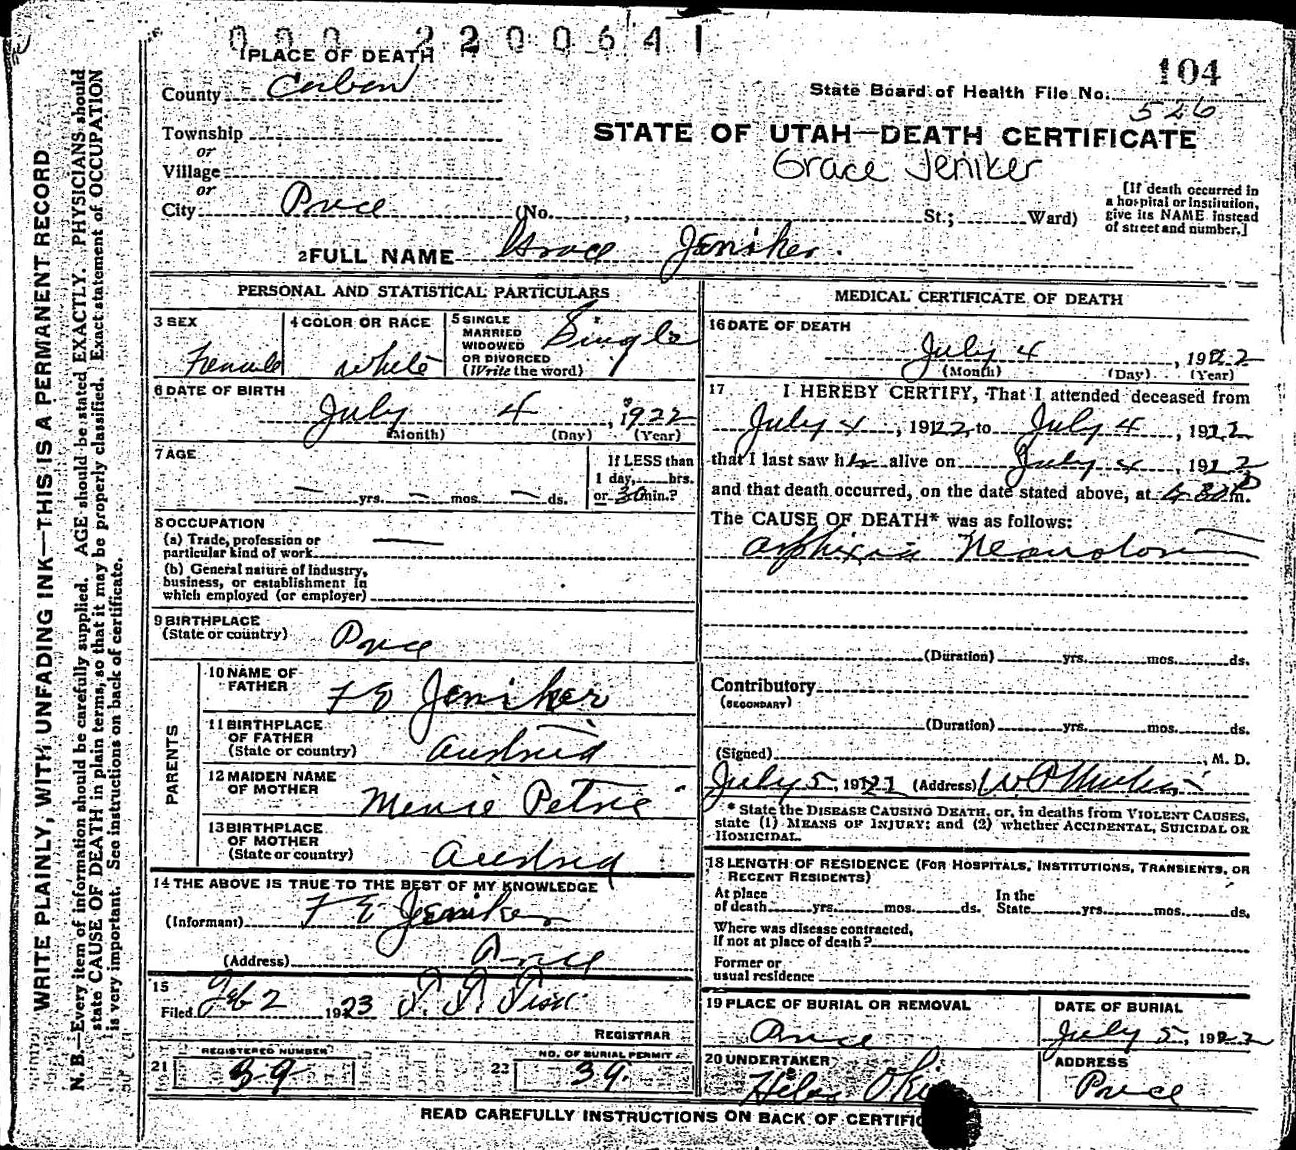 000 2200641
1 PLACE OF DEATH
104
County Carbon
State Board of Health File No. 526
Township
or
STATE OF UTAH—DEATH CERTIFICATE
Village
Grace Jeniker
or
City Price (No. , St.; Ward)
[If death occurred in
a hospital or institution,
give its NAME instead
of street and number.]
2 FULL NAME Grace Jeniker
PERSONAL AND STATISTICAL PARTICULARS
3 SEX
Female
4 COLOR OR RACE
White
5 SINGLE
MARRIED
WIDOWED
OR DIVORCED
(Write the word)
Single
6 DATE OF BIRTH
July 4, 1922
(Month) (Day) (Year)
7 AGE
— yrs. — mos. — ds.
If LESS than
1 day, hrs.
or 30 min.?
8 OCCUPATION
(a) Trade, profession or
particular kind of work —
(b) General nature of Industry,
business, or establishment in
which employed (or employer)
9 BIRTHPLACE
(State or country) Price
PARENTS
10 NAME OF
FATHER F E Jeniker
11 BIRTHPLACE
OF FATHER
(State or country) Austria
12 MAIDEN NAME
OF MOTHER Petric
13 BIRTHPLACE
OF MOTHER
(State or country) Austria
14 THE ABOVE IS TRUE TO THE BEST OF MY KNOWLEDGE
(Informant) F E Jeniker
(Address) Price
15
Filed Feb 2 1923
REGISTRAR
21 REGISTERED NUMBER 39
22 NO. OF BURIAL PERMIT 39
MEDICAL CERTIFICATE OF DEATH
16 DATE OF DEATH
July 4, 1922
(Month) (Day) (Year)
17 I HEREBY CERTIFY, That I attended deceased from
July 4, 1922 to July 4, 1922
that I last saw her alive on July 4, 1922
and that death occurred, on the date stated above, at 4 30 P m.
The CAUSE OF DEATH* was as follows:
(Duration) yrs. mos. ds.
Contributory
(SECONDARY)
(Duration) yrs. mos. ds.
(Signed) , M. D.
July 5, 19 (Address)
* State the DISEASE CAUSING DEATH, or, in deaths from VIOLENT CAUSES,
state (1) MEANS OF INJURY; and (2) whether ACCIDENTAL, SUICIDAL OR
HOMICIDAL.
18 LENGTH OF RESIDENCE (FOR HOSPITALS, INSTITUTIONS, TRANSIENTS, OR
RECENT RESIDENTS)
At place
of death yrs. mos. ds.
In the
State yrs. mos. ds.
Where was disease contracted,
if not at place of death?
Former or
usual residence
19 PLACE OF BURIAL OR REMOVAL
Price
DATE OF BURIAL
July 5, 1922
20 UNDERTAKER
ADDRESS
Price
READ CAREFULLY INSTRUCTIONS ON BACK OF CERTIFIC
WRITE PLAINLY, WITH UNFADING INK—THIS IS A PERMANENT RECORD
N. B.—Every item of information should be carefully supplied. AGE should be stated EXACTLY. PHYSICIANS should
state CAUSE OF DEATH in plain terms, so that it may be properly classified. Exact statement of OCCUPATION
is very important. See instructions on back of certificate.